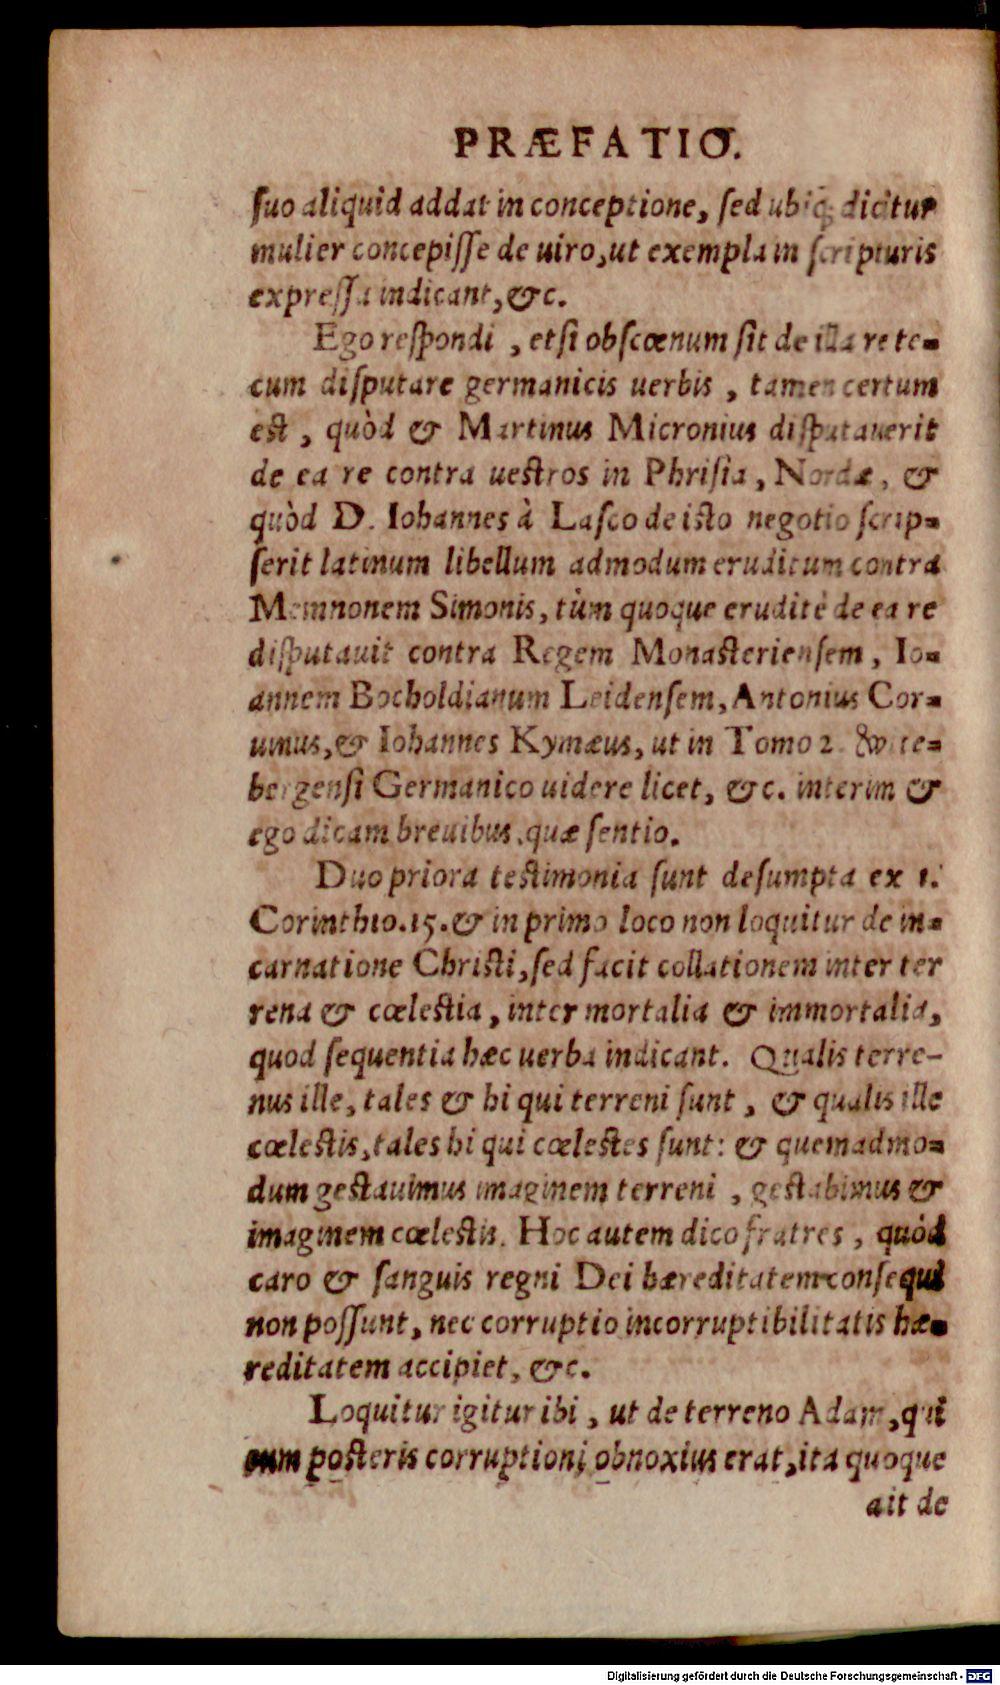 PRÆFATIO.
ſuo aliquid addat in conceptione, ſed ubiq; dicitur
mulier concepiſſe de uiro, ut exempla in ſcripturis
expreſſa indicant, &c.
Ego reſpondi, etſi obſcœnum ſit de illa re te-
cum diſputare germanicis uerbis, tamen certum
est, quòd & Martinus Micronius diſputauerit
de ea re contra uestros in Phriſia, Nordæ, &
quòd D. Iohannes à Laſco de isto negotio ſcrip-
ſerit latinum libellum admodum eruditum contra
Memnonem Simonis, tùm quoque eruditè de ea re
diſputauit contra Regem Monasterienſem, Io-
annem Bocholdianum Leidenſem, Antonius Cor-
uinus, & Iohannes Kymæus, ut in Tomo 2. Wite-
bergenſi Germanico uidere licet, &c. interim &
ego dicam breuibus, quæ ſentio.
Duo priora testimonia ſunt deſumpta ex 1.
Corinthio. 15. & in primo loco non loquitur de in-
carnatione Christi, ſed facit collationem inter ter
rena & cœlestia, inter mortalia & immortalia,
quod ſequentia hæc uerba indicant. Qualis terre-
nus ille, tales & hi qui terreni ſunt, & qualis ille
cœlestis, tales hi qui cœlestes ſunt: & quemadmo-
dum gestauimus imaginem terreni, gestabimus &
imaginem cœlestis. Hoc autem dico fratres, quòd
caro & ſanguis regni Dei hæreditatem conſequi
non poſſunt, nec corruptio incorruptibilitatis hæ-
reditatem accipiet, &c.
Loquitur igitur ibi, ut de terreno Adam, qui
cum posteris corruptioni obnoxius erat, ita quoque
ait de
Digitalisierung gefördert durch die Deutsche Forschungsgemeinschaft - DFG